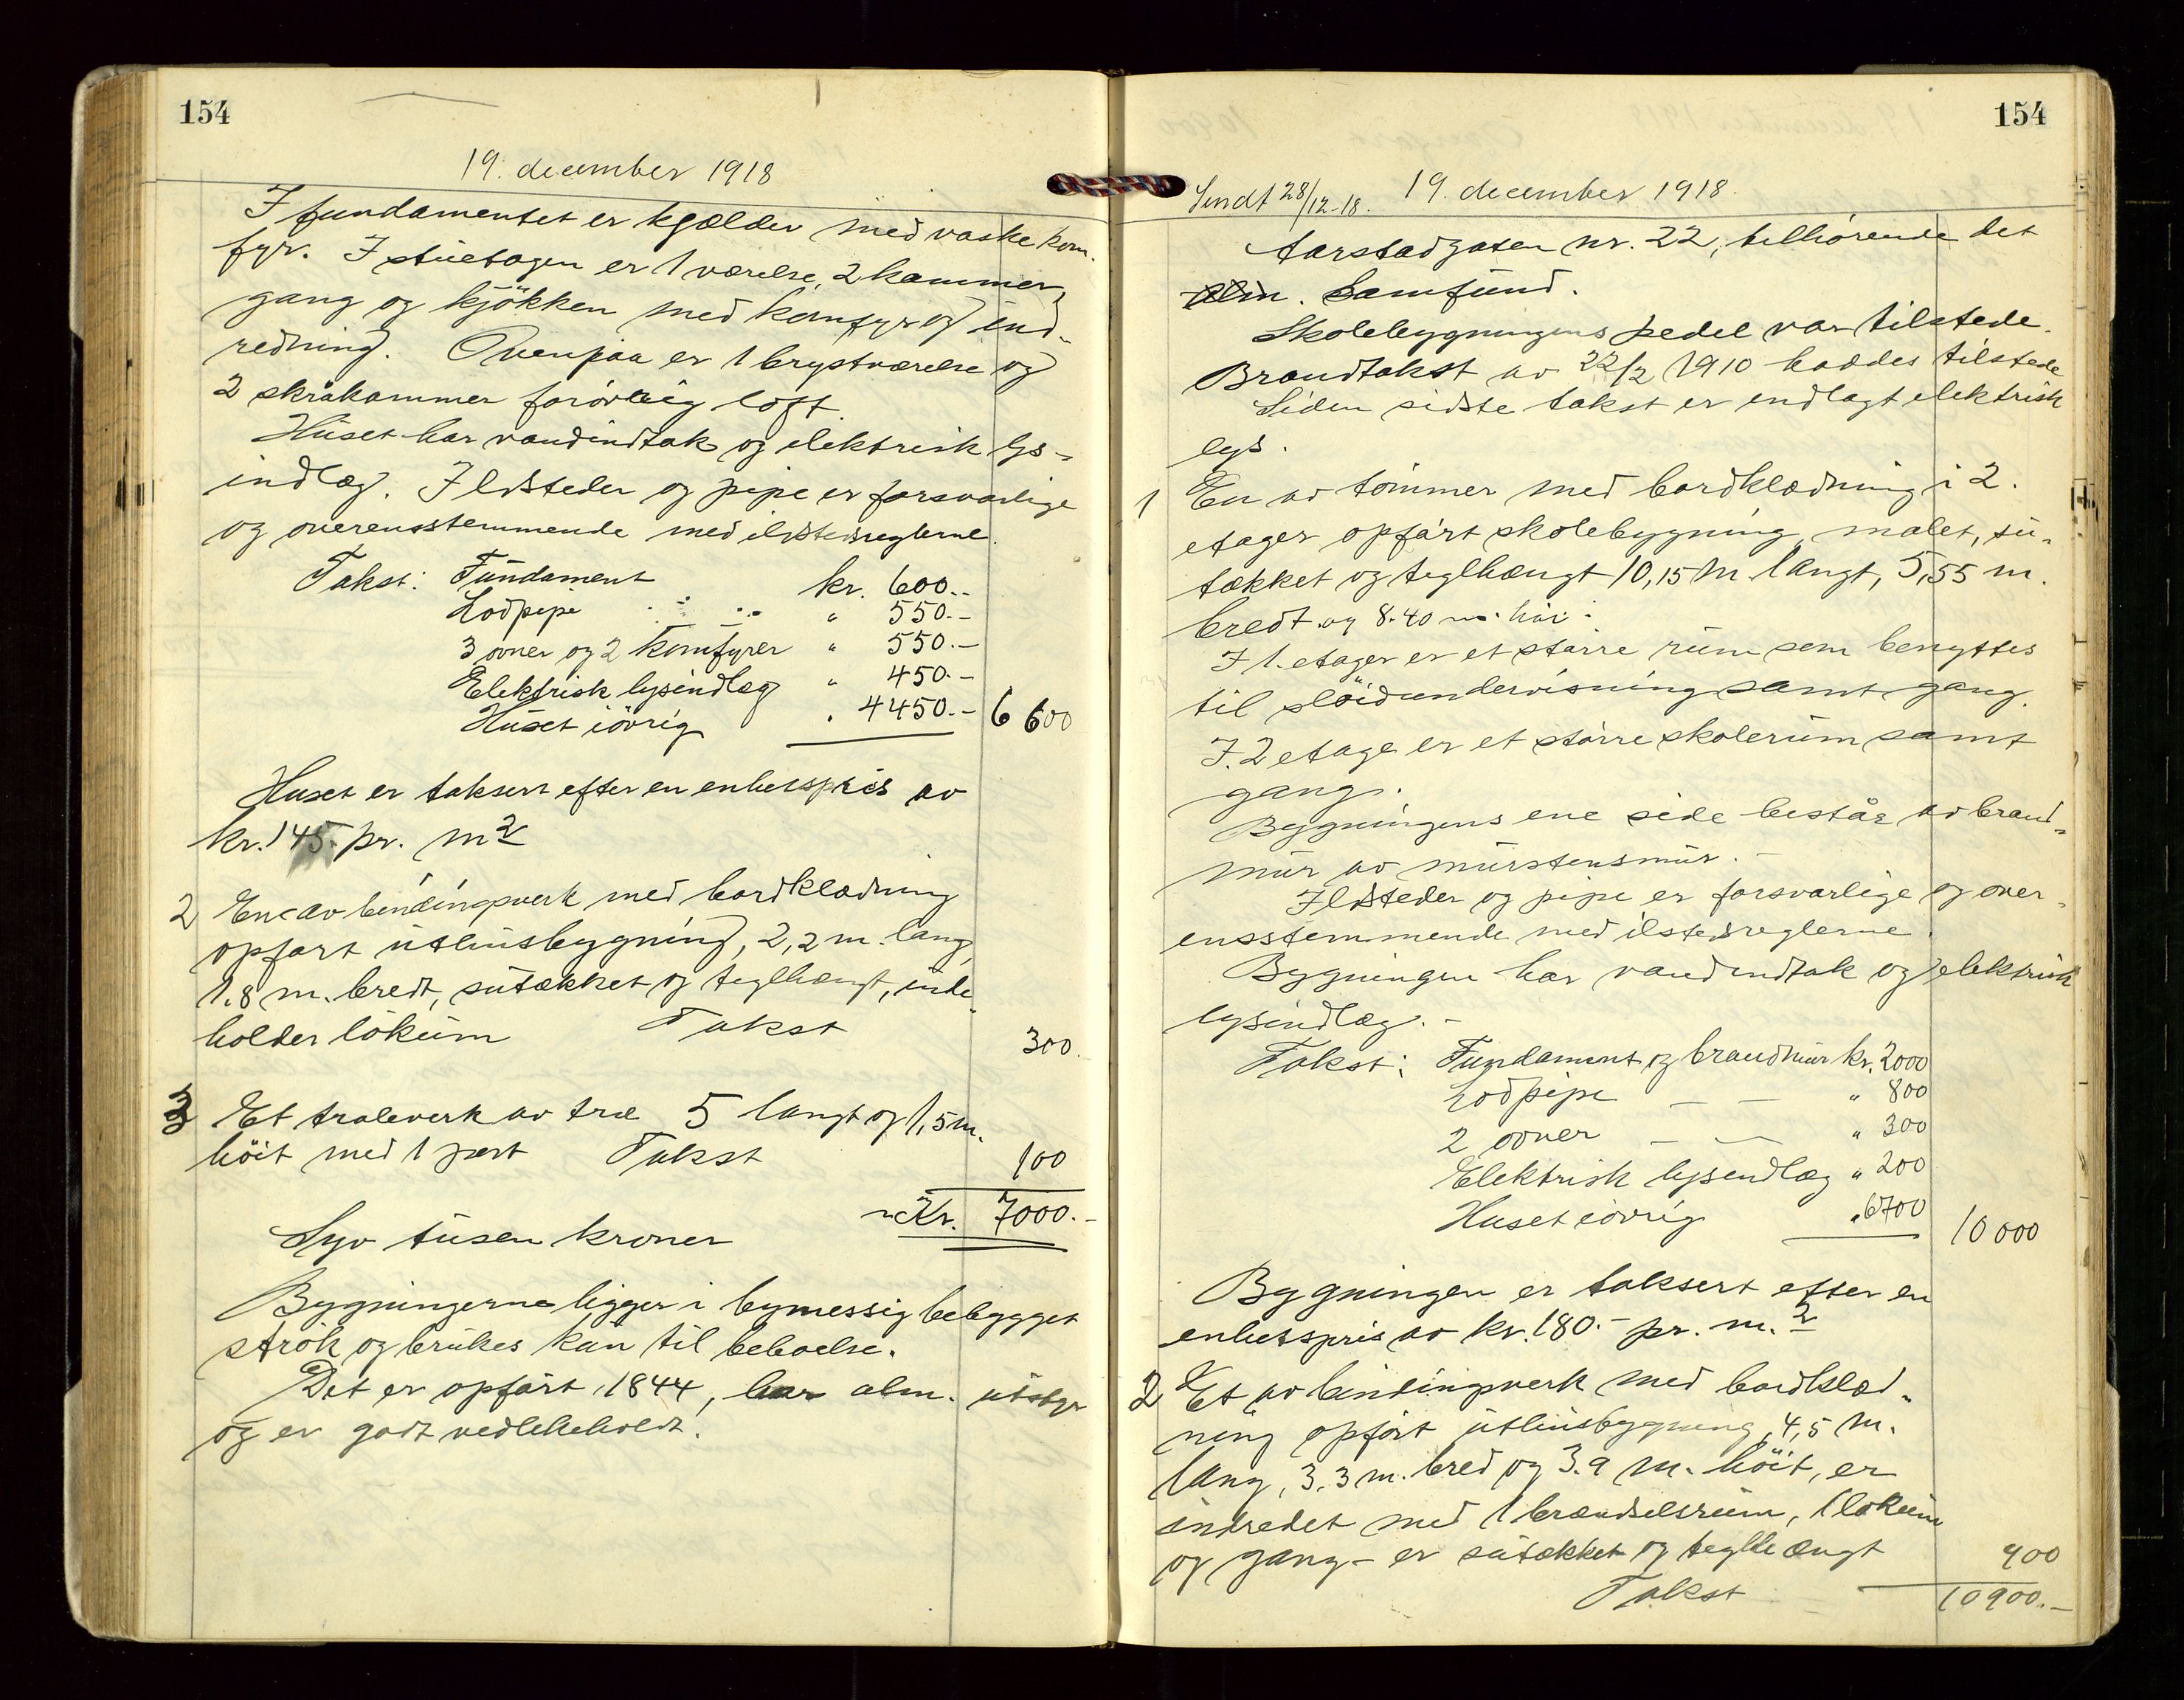 154
19. december 1918
I fundamentet er kjælder med vaskekom-
fyr. I stuetagen er 1 værelse, 2 kammer,
gang og kjökken med komfyr og ind-
redning. Ovenpaa er 1 brystværelse og
2 skråkammer forövrig loft.
Huset har vandindtak og elektrisk lys-
indlæg. Ildsteder og pipe er forsvarlige
og overensstemmende med ildstedsreglerne.
Takst: Fundament kr. 600.-
Lodpipe " 550.-
3 ovner og 2 komfyrer " 550.-
Elektrisk lysindlæg " 450.-
Huset iövrig " 4450.- 6600
Huset er taksert efter en enhetspris av
kr. 145. pr. m2
2 En av bindingsverk med bordklædning
opført uthusbygning, 2,2 m. lang,
1.8 m. bredt, sutækket og teglhængt, inde-
holder lokum Takst 300.
3 Et traleverk av træ 5 langt og 1,5 m.
höit med 1 port Takst 100
Kr. 7000.-
Syv tusen kroner
Bygningerne ligger i bymessig bebygget
strök og brukes kun til beboelse.
Det er opført 1844, har alm. utstyr
og er godt vedlikeholdt.
154
Sendt 28/12-18. 19. december 1918.
Aarstadgaten nr. 22, tilhörende det
alm. Samfund.
Skolebygningens pedel var tilstede.
Brandtakst av 22/2 1910 haddes tilstede
Siden sidste takst er indlagt elektrisk
lys.
1 En av tömmer med bordklædning i 2.
etager opført skolebygning, malet, su-
tækket og teglhængt 10,15 m langt, 5,55 m.
bredt og 8.40 m. höi.
I 1. etager er et större rum som benyttes
til slöidundervisning samt gang.
I. 2 etage er et större skolerum samt
gang.
Bygningens ene side består av brand-
mur av murstensmur.
Ildsteder og pipe er forsvarlige og over-
ensstemmende med ilstedsreglerne.
Bygningen har vandindtak og elektrisk
lysindlæg.-
Takst: Fundament og brandmur kr. 2000
Lodpipe — — " 800
2 ovner — — " 300
Elektrisk lysindlæg " 200
Huset iövrig " 6700 10000
Bygningen er taksert efter en
enhetspris av kr. 180.- pr. m.2
2 Et av bindingsverk med bordklæd-
ning opført uthusbygning 4,5 m.
lang, 3.3 m. bred og 3.9 m. höit, er
indredet med 1 brændselsrum, 1 lokum
og gang - er sutækket og teglhængt 900
Takst 10900.-